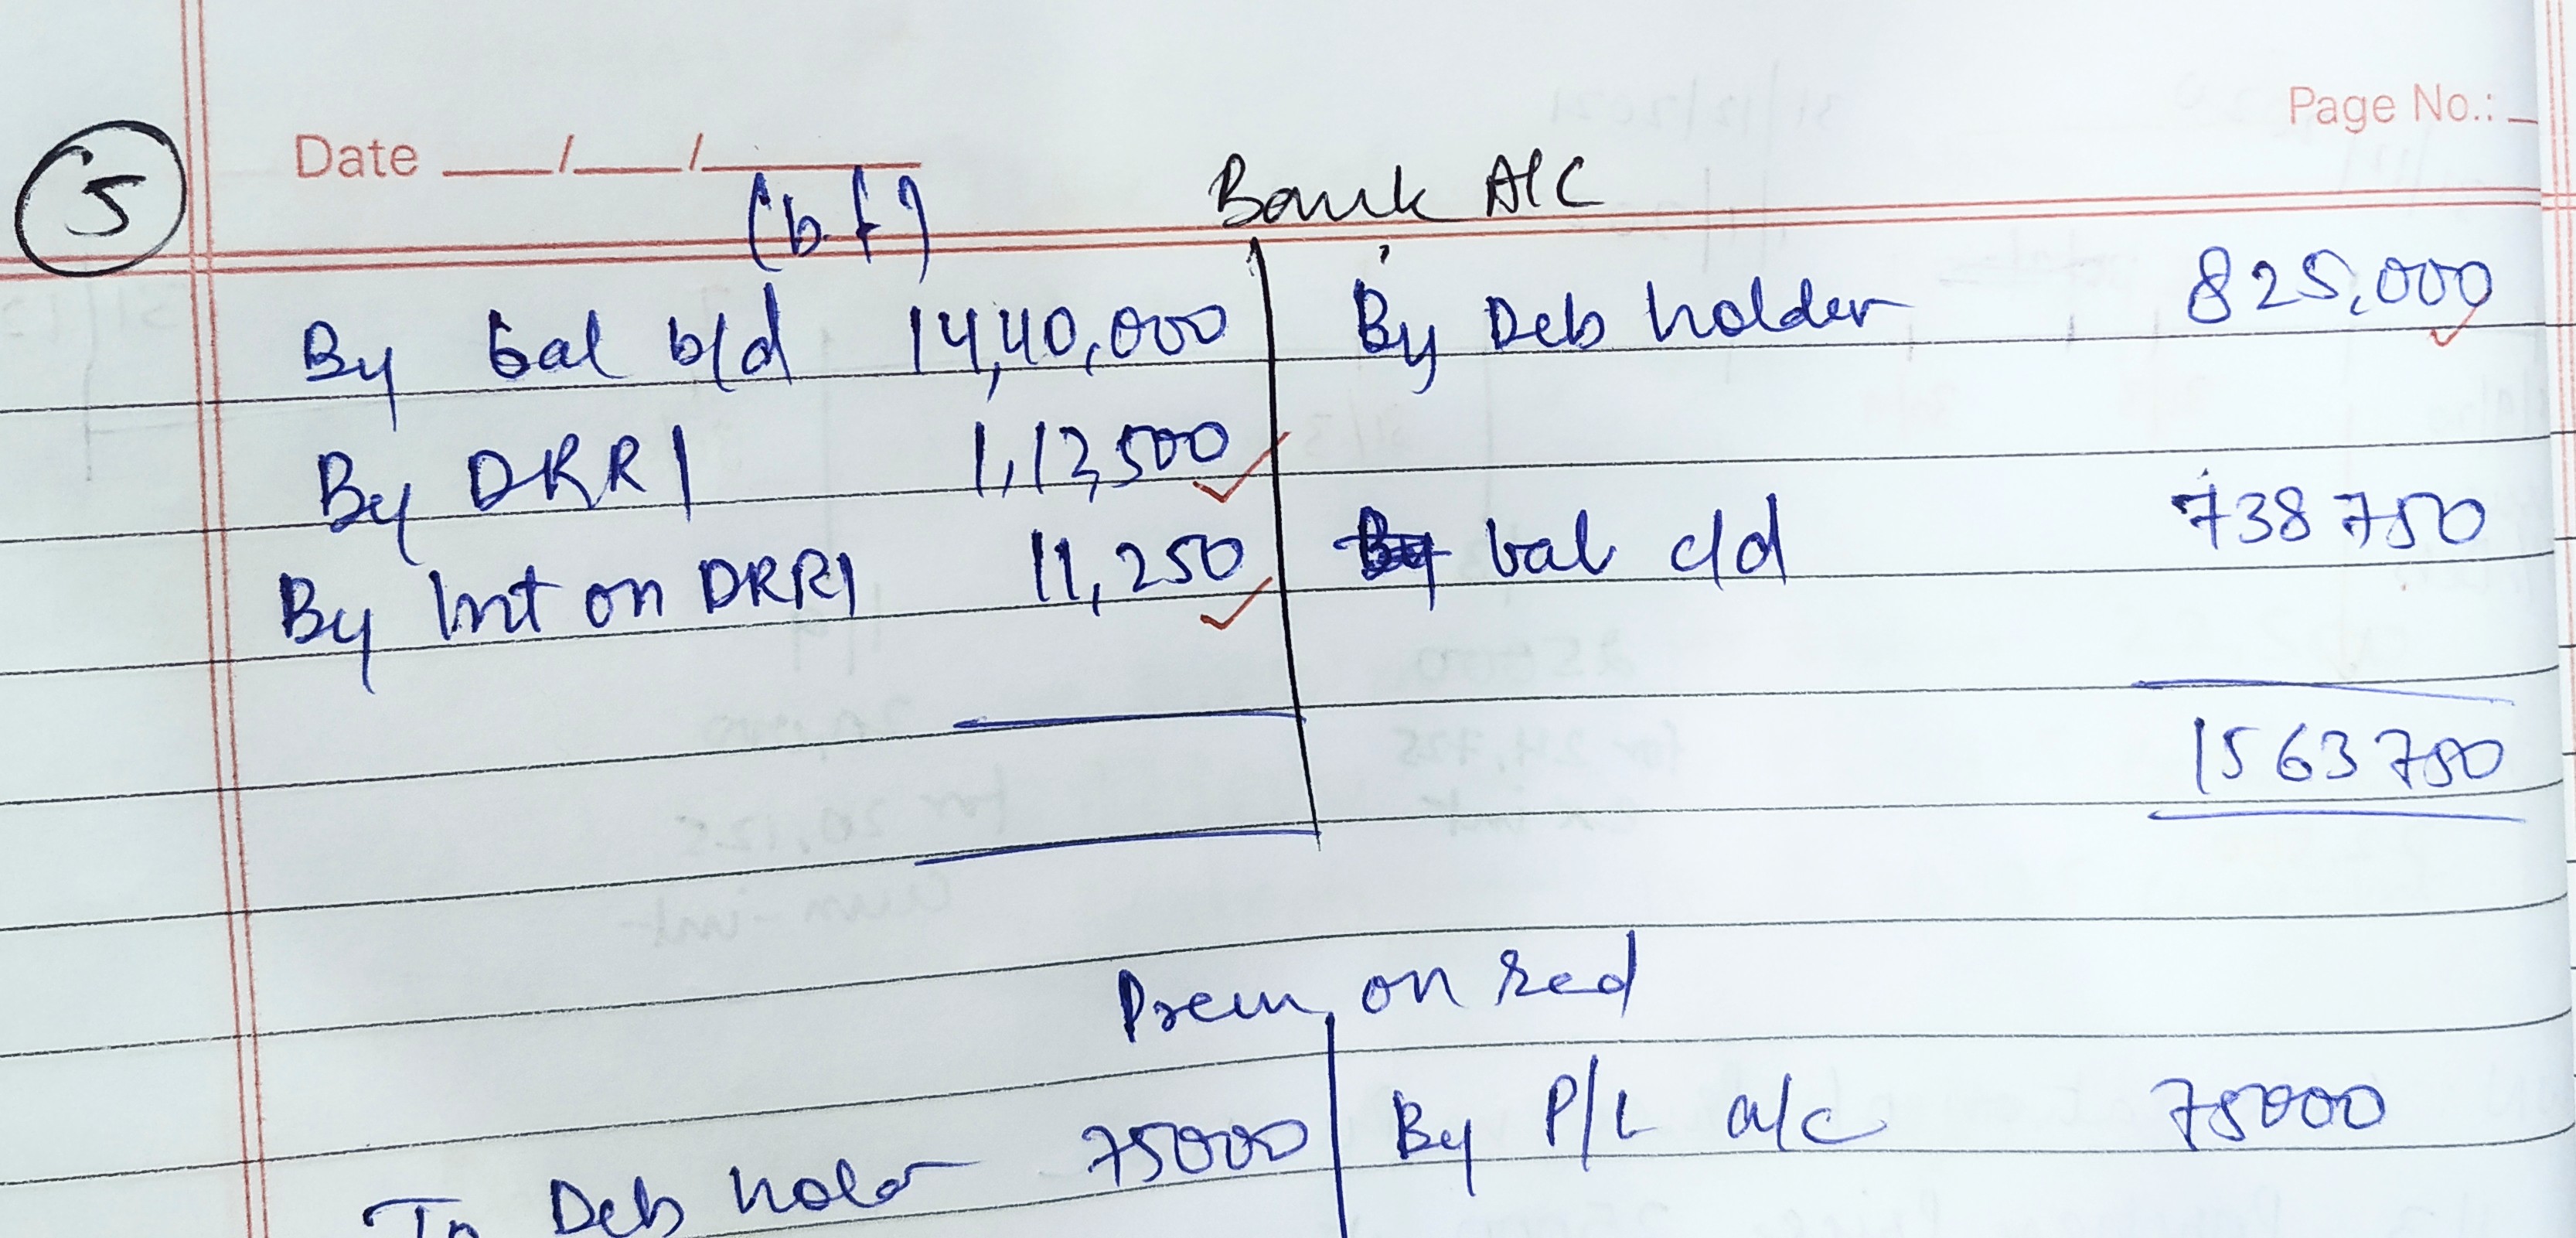 Page No.:
5 Date / /
(b.f) Bank A/C
By bal b/d 14,40,000 By Deb holder 825,000
By DRRI 1,12,500
By Int on DRRI 11,250 By bal c/d 738750
1563750
Prem on red
To Deb holder 75000 By P/L a/c 75000